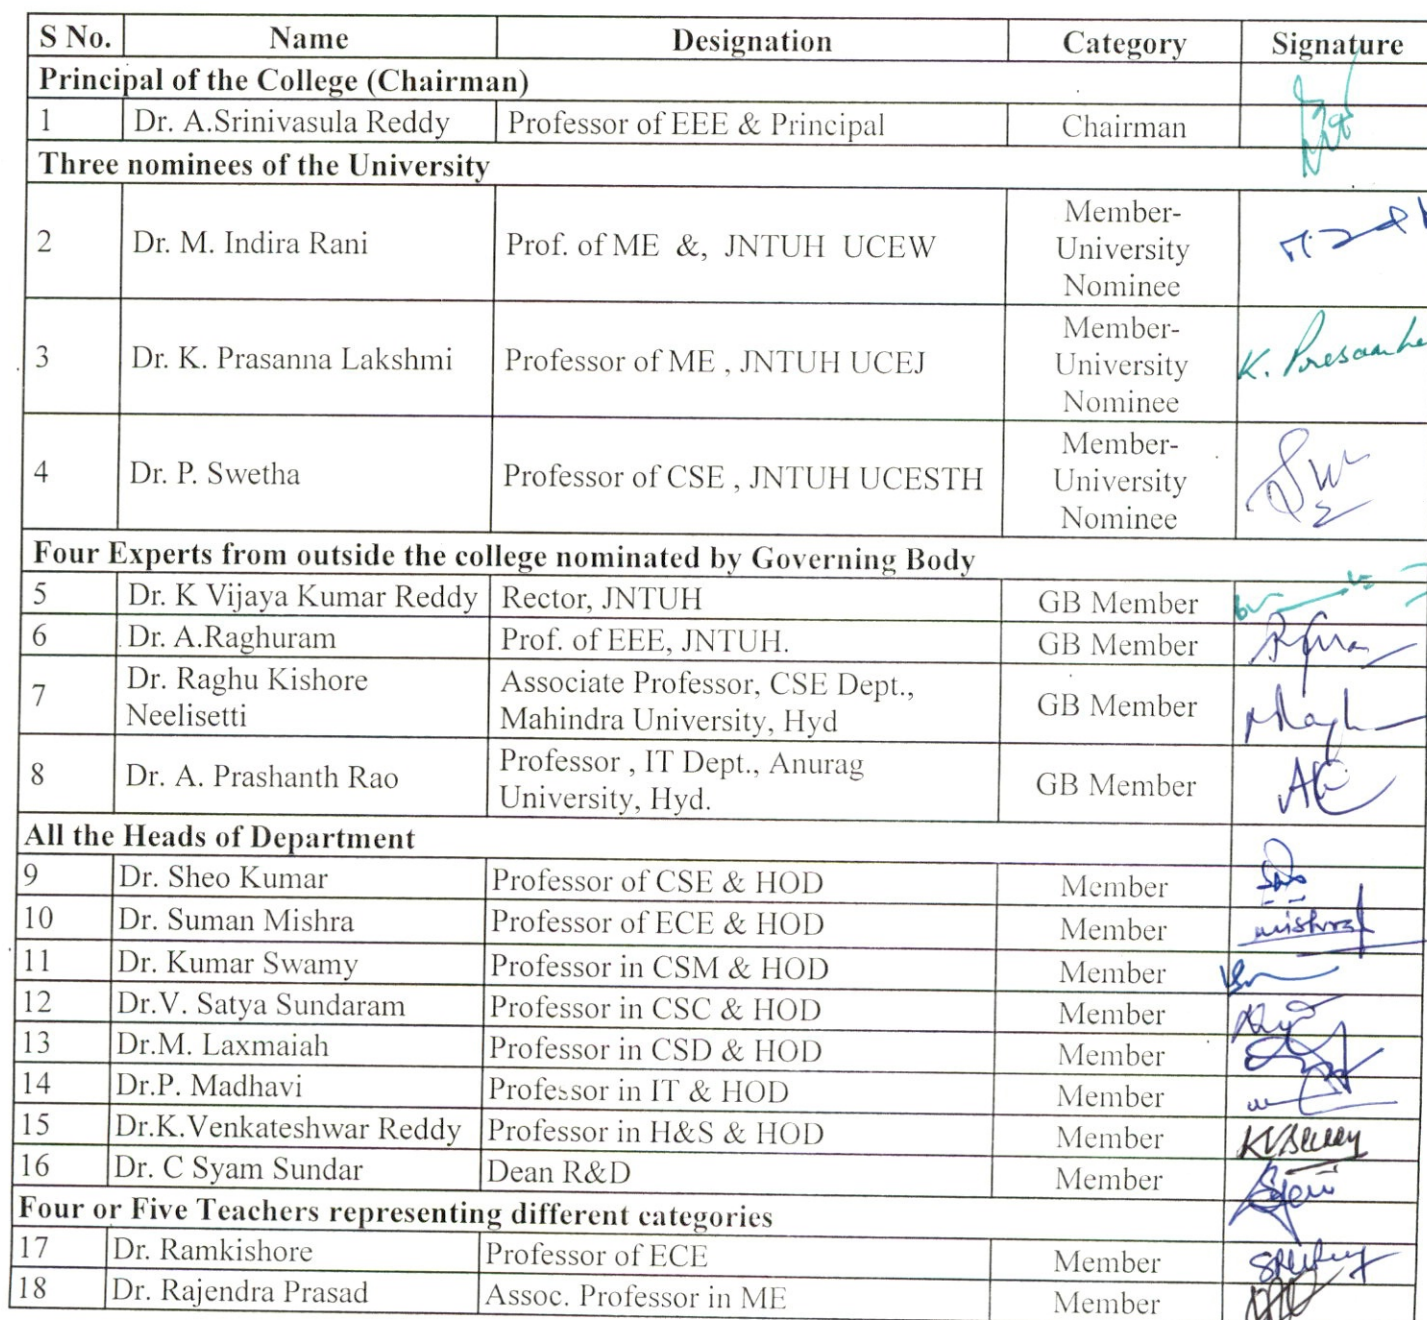 S No. Name Designation Category Signature
Principal of the College (Chairman)
1 Dr. A.Srinivasula Reddy Professor of EEE & Principal Chairman
Three nominees of the University
2 Dr. M. Indira Rani Prof. of ME &, JNTUH UCEW Member-
University
Nominee
3 Dr. K. Prasanna Lakshmi Professor of ME , JNTUH UCEJ Member-
University
Nominee
4 Dr. P. Swetha Professor of CSE , JNTUH UCESTH Member-
University
Nominee
Four Experts from outside the college nominated by Governing Body
5 Dr. K Vijaya Kumar Reddy Rector, JNTUH GB Member
6 Dr. A.Raghuram Prof. of EEE, JNTUH. GB Member
7 Dr. Raghu Kishore
Neelisetti
Associate Professor, CSE Dept.,
Mahindra University, Hyd
GB Member
8 Dr. A. Prashanth Rao Professor , IT Dept., Anurag
University, Hyd.
GB Member
All the Heads of Department
9 Dr. Sheo Kumar Professor of CSE & HOD Member
10 Dr. Suman Mishra Professor of ECE & HOD Member
11 Dr. Kumar Swamy Professor in CSM & HOD Member
12 Dr.V. Satya Sundaram Professor in CSC & HOD Member
13 Dr.M. Laxmaiah Professor in CSD & HOD Member
14 Dr.P. Madhavi Professor in IT & HOD Member
15 Dr.K.Venkateshwar Reddy Professor in H&S & HOD Member
16 Dr. C Syam Sundar Dean R&D Member
Four or Five Teachers representing different categories
17 Dr. Ramkishore Professor of ECE Member
18 Dr. Rajendra Prasad Assoc. Professor in ME Member